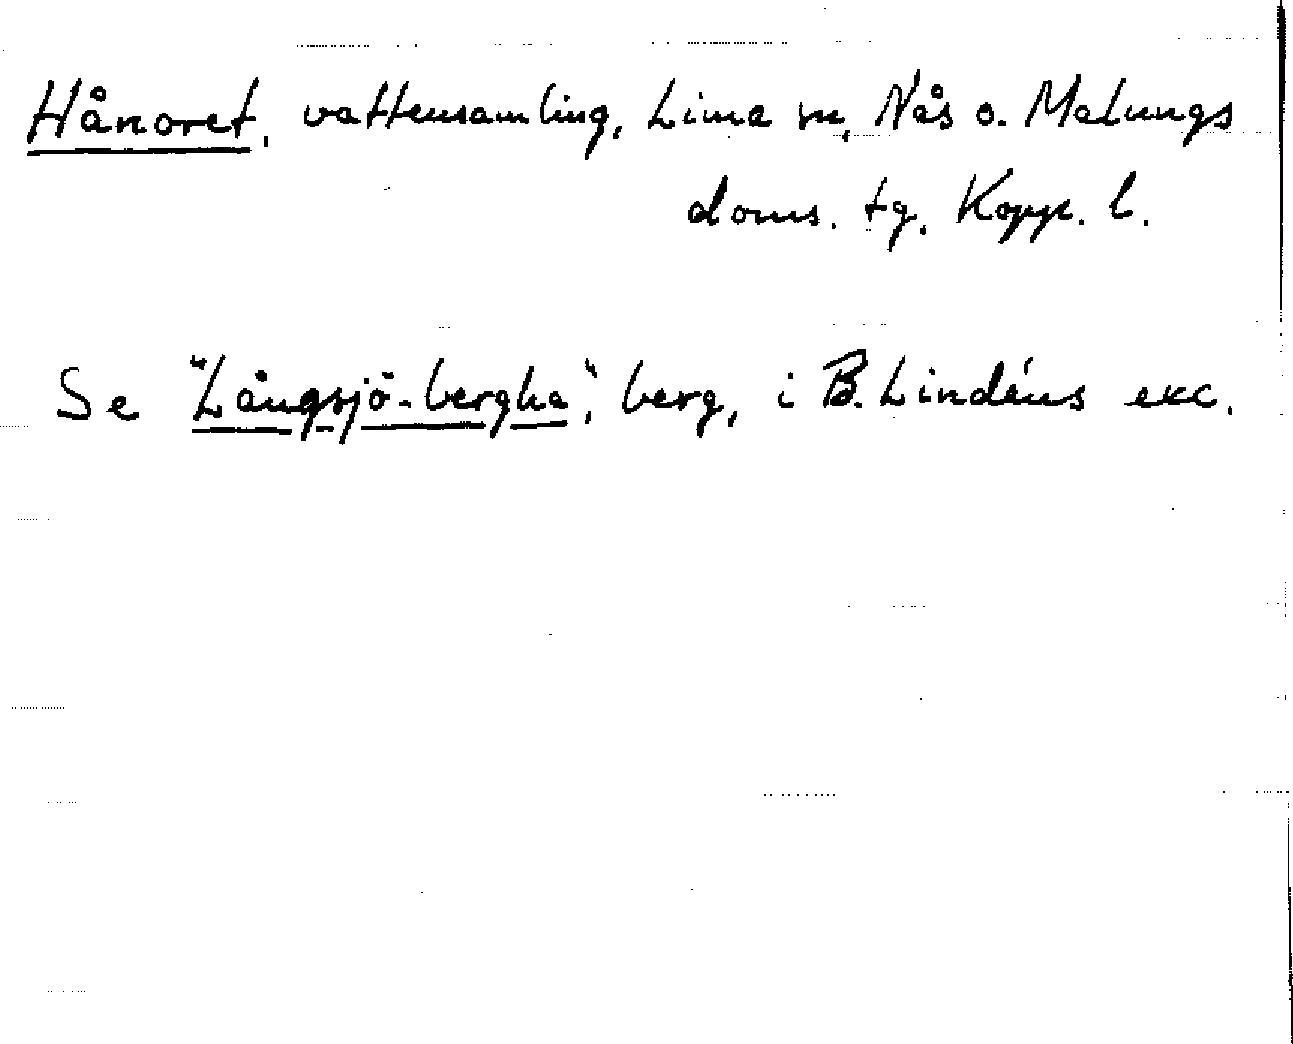 Hånoret, vattensamling, Lima sn, Nås o. Malungs
doms. tg. Kopp. l.
Se "Långsjö-bergha", berg, i B. Lindéns exc.